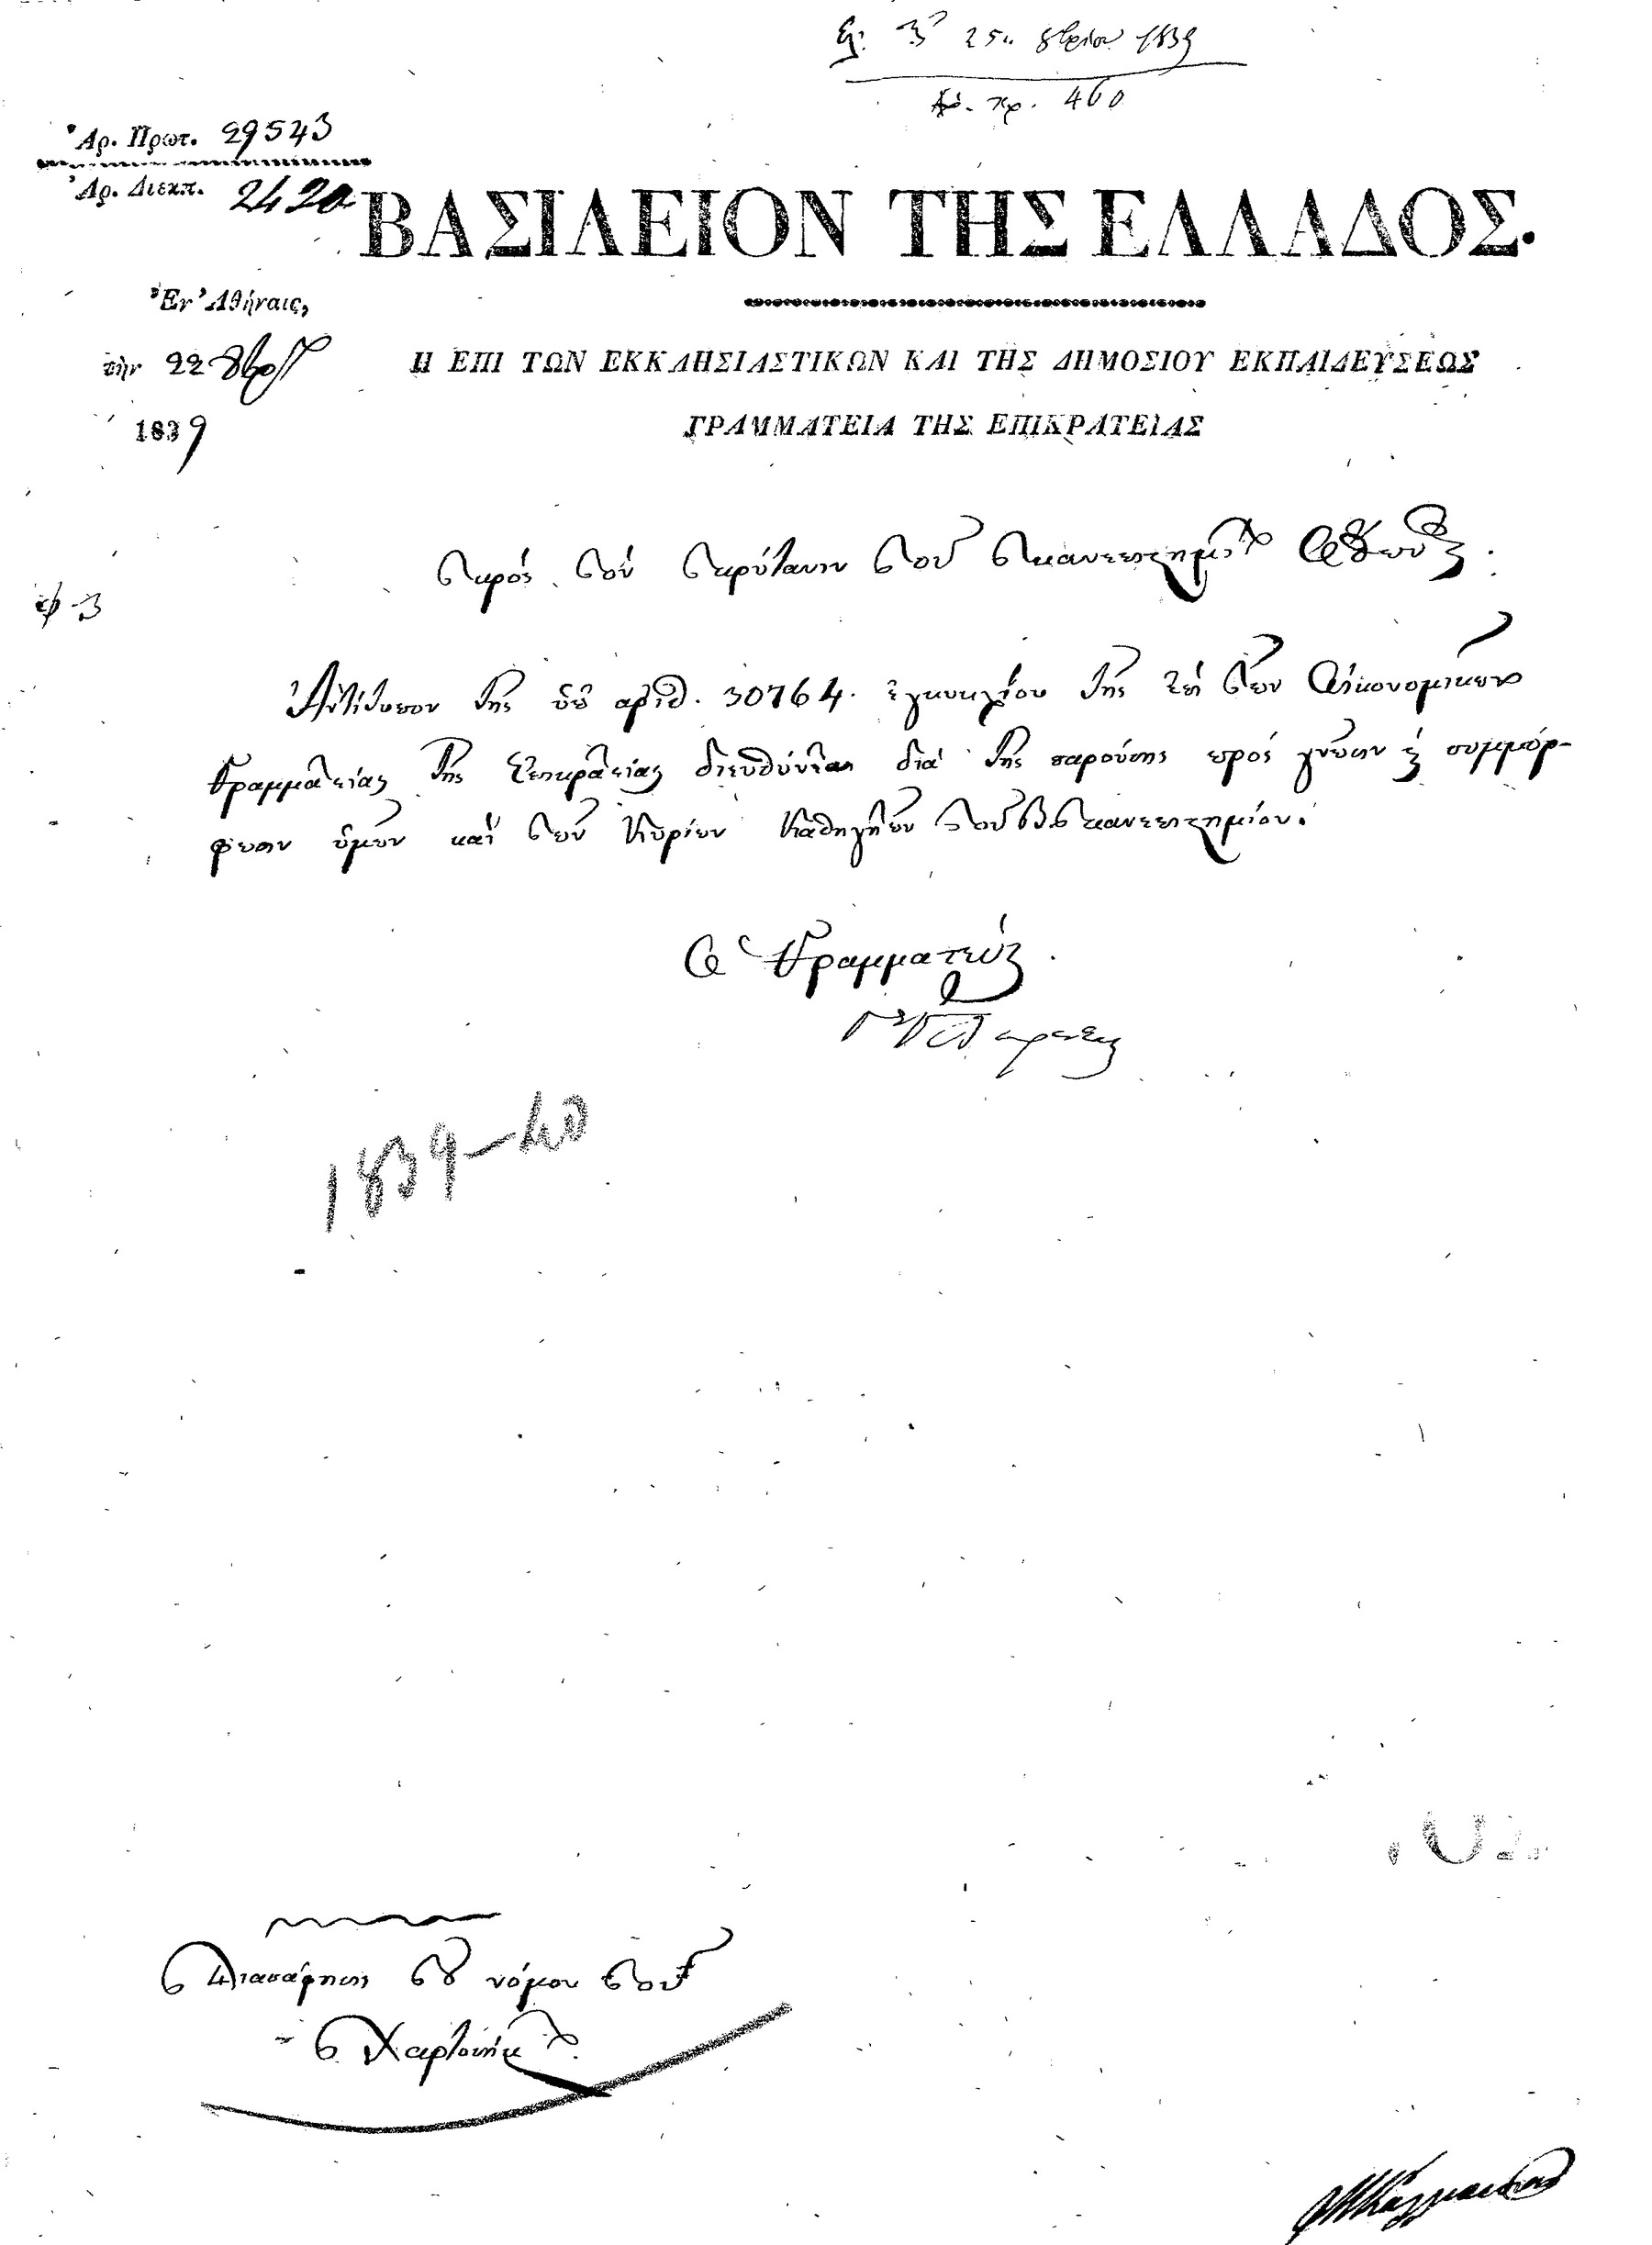 25 8βρίου 1839
Ἀρ. πρ. 460
Ἀρ. Πρωτ. 29543
Ἀρ. Διεκπ. 2420
ΒΑΣΙΛΕΙΟΝ ΤΗΣ ΕΛΛΑΔΟΣ.
Ἐν Ἀθήναις,
τὴν 22 8βρίου
1839
Η ΕΠΙ ΤΩΝ ΕΚΚΛΗΣΙΑΣΤΙΚΩΝ ΚΑΙ ΤΗΣ ΔΗΜΟΣΙΟΥ ΕΚΠΑΙΔΕΥΣΕΩΣ
ΓΡΑΜΜΑΤΕΙΑ ΤΗΣ ΕΠΙΚΡΑΤΕΙΑΣ
Πρὸς τὸν Πρύτανιν τοῦ Πανεπιστημίου Ὄθωνος.
Ἀντίτυπον τῆς ὑπ' ἀριθ. 30764. ἐγκυκλίου τῆς ἐπὶ τῶν Οἰκονομικῶν
Γραμματείας τῆς Ἐπικρατείας διευθύνεται διὰ τῆς παρούσης πρὸς γνῶσιν καὶ συμμόρ-
φωσιν ὑμῶν καὶ τῶν Κυρίων Καθηγητῶν τοῦ Πανεπιστημίου.
Ὁ Γραμματεὺς
1839-40
Διασάφησις τοῦ νόμου τοῦ
Χαρτοσήμου